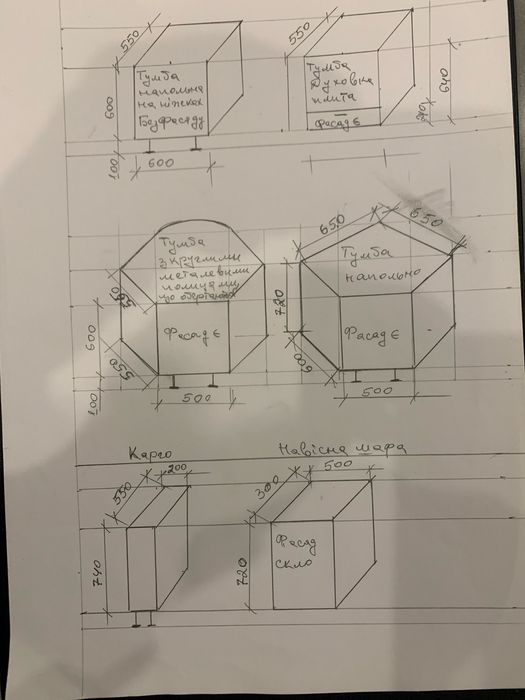 550
Тумба
напольна
на ніжках
Без фасаду
600
100
600
550
Тумба
Духовка
плита
Фасад є
640
Тумба
з круглими
металевими
полицями
що обертаються
Фасад є
600
550
100
500
650
650
Тумба
напольна
720
Фасад є
600
500
Карго
200
550
740
Навісна шафа
500
300
Фасад
скло
720